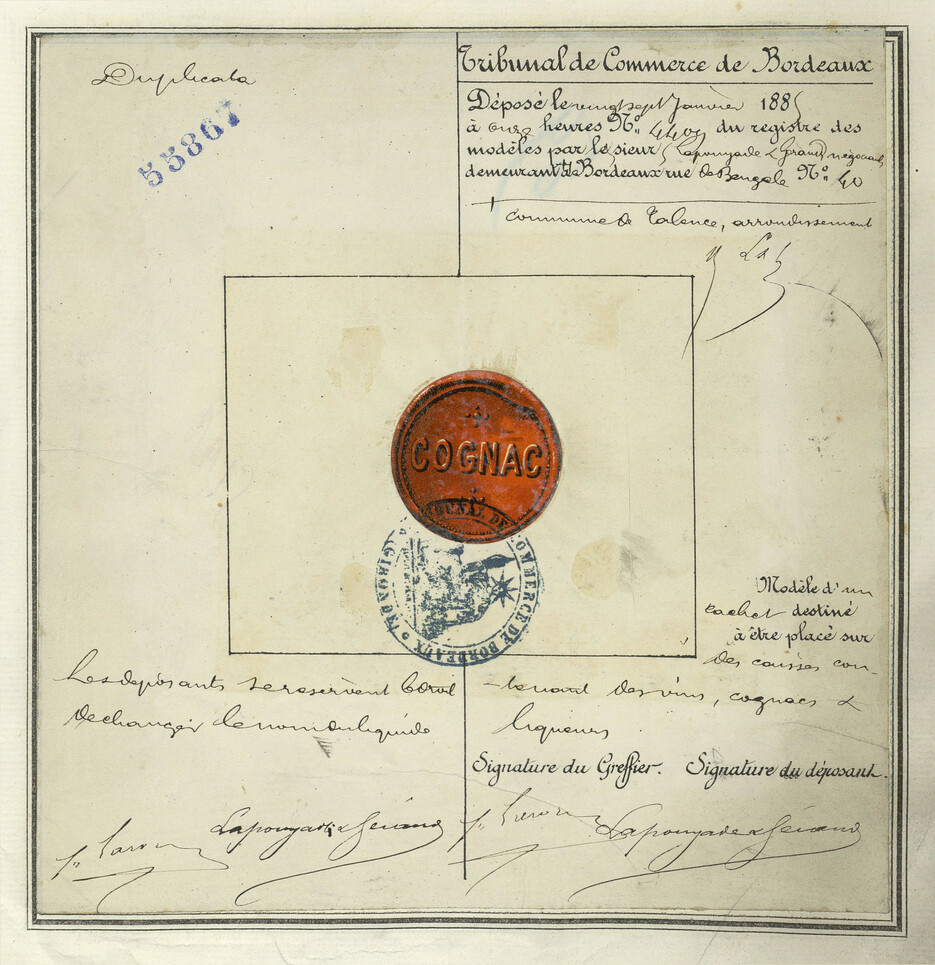 Duplicata
55867
Tribunal de Commerce de Bordeaux
Déposé le vingt sept Janvier 1885
à onze heures N° 4409 du registre des
modèles par le sieurs Lapouyade & Girand négociants
demeurant à Bordeaux rue de Bengale N° 40
commune de Talence, arrondissement
COGNAC
TRIBUNAL DE COMMERCE DE BORDEAUX (GIRONDE)
Modèle d'un
cachet destiné
à être placé sur
des caisses con-
tenant des vins, cognacs &
liqueurs
Les déposants se reservent le droit
de changer le nom du liquide
Signature du Greffier. Signature du déposant.
Lapouyade & Girand
Lapouyade & Girand